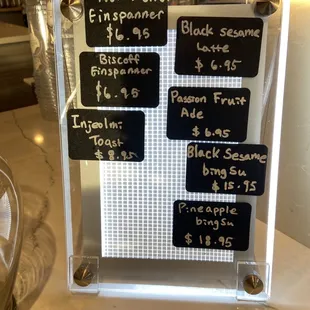 Einspanner
$6.95
Biscoff
Einspanner
$6.95
Injeolmi
Toast
$8.95
Black Sesame
Latte
$6.95
Passion Fruit
Ade
$6.95
Black Sesame
bingSu
$15.95
Pineapple
bingSu
$18.95